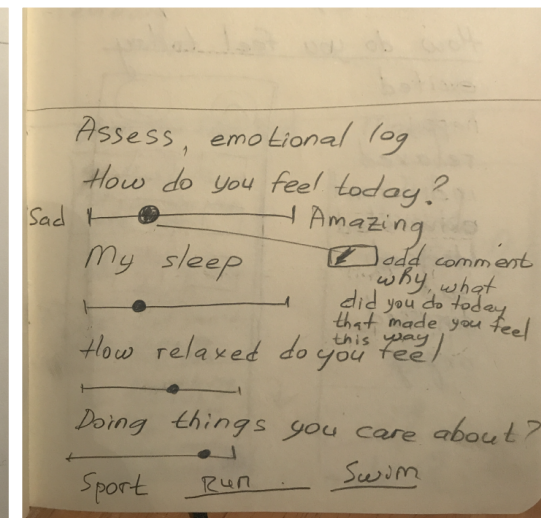 Assess, emotional log
How do you feel today?
Sad Amazing
My sleep
add comment
why, what
did you do today
that made you feel
this way!
How relaxed do you feel
Doing things you care about?
Sport Run Swim